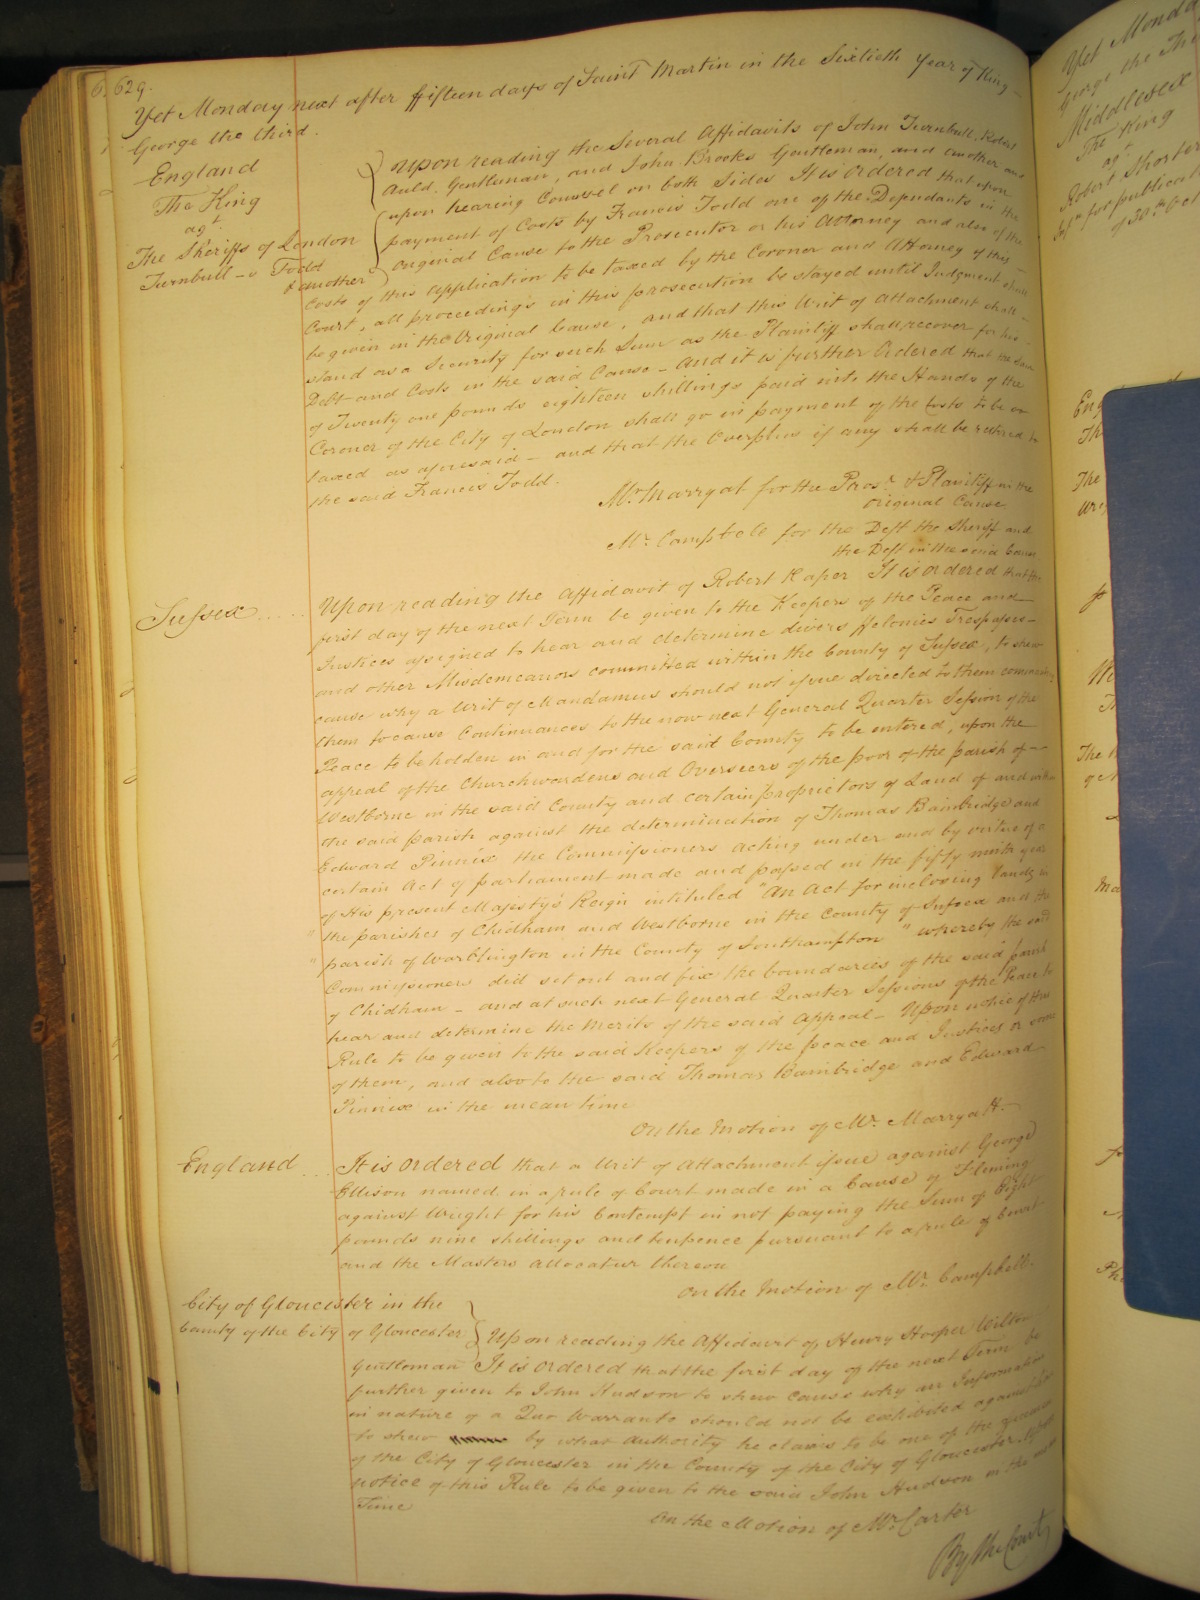 629.
Yet Monday next after fifteen days of Saint Martin in the Sixtieth Year of King
George the third.
England
The King
agt
The Sheriffs of London
Turnbull - v Todd
& another
Upon reading the Several Affidavits of John Turnbull, Robert
Auld, Gentleman, and John Brooks Gentleman, and another and
upon hearing Counsel on both Sides It is ordered that upon
payment of Costs by Francis Todd one of the Defendants in the
original Cause to the Prosecutor or his Attorney and also of the
Costs of this application to be taxed by the Coroner and Attorney of this
Court, all proceedings in this prosecution be stayed until Judgment shall
be given in the Original Cause, and that this Writ of Attachment shall
stand as a Security for such Sum as the Plaintiff shall recover for his
Debt and Costs in the said Cause - And it is further Ordered that the Sum
of Twenty one pounds eighteen shillings paid into the Hands of the
Coroner of the City of London shall go in payment of the Costs to be so
taxed as aforesaid - and that the Overplus if any shall be returned to
the said Francis Todd.
Mr. Marryat for the Prosr. & Plaintiff in the
original Cause
Mr. Campbell for the Deft the Sheriff and
the Deft in the said Cause
Sussex
Upon reading the Affidavit of Robert Raper It is ordered that the
first day of the next Term be given to the Keepers of the Peace and
Justices assigned to hear and determine divers ffelonies Trespasses
and other Misdemeanors committed within the County of Sussex, to shew
cause why a Writ of Mandamus should not issue directed to them commanding
them to cause Continuances to the now next General Quarter Session of the
Peace to be holden in and for the said County to be entered, upon the
appeal of the Churchwardens and Overseers of the poor of the parish of
Westborne in the said County and certain proprietors of Land of and within
the said parish against the determination of Thomas Bainbridge and
Edward Pinnix the Commissioners acting under and by virtue of a
certain Act of parliament made and passed in the fifty ninth year
of His present Majesty's Reign intituled "An Act for inclosing Lands in
" the parishes of Chidham and Westborne in the County of Sussex and the
" parish of Warblington in the County of Southampton" whereby the said
Commissioners did set out and fix the boundaries of the said parish
of Chidham - and at such next General Quarter Sessions of the Peace to
hear and determine the Merits of the said Appeal - Upon notice of this
Rule to be given to the said Keepers of the peace and Justices or some
of them, and also to the said Thomas Bainbridge and Edward
Pinnix in the mean time
On the Motion of Mr. Marryatt.
England
It is ordered that a Writ of Attachment issue against George
Ellison named in a rule of Court made in a Cause of Fleming
against Wright for his Contempt in not paying the Sum of Eight
pounds nine shillings and tenpence pursuant to a rule of Court
and the Masters allocatur thereon
On the Motion of Mr. Campbell.
City of Gloucester in the
County of the City of Gloucester
Upon reading the Affidavit of Henry Hooper Wilton
Gentleman It is ordered that the first day of the next Term be
further given to John Hudson to shew cause why an Information
in nature of a Quo Warranto should not be exhibited against him
to shew by what authority he claims to be one of the
of the City of Gloucester in the County of the City of Gloucester, upon
notice of this Rule to be given to the said John Hudson in the mean
Time
On the Motion of Mr. Carter
By the Court
Yet Monday
George the Thi
Middlesex
The King
agt
Robert Shorter
Infn for publicat
of 30th Oct